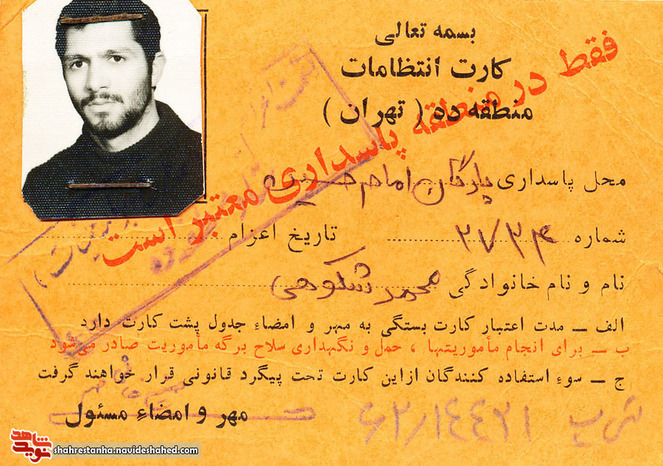 بسمه تعالی
کارت انتظامات
منطقه ده ( تهران )
فقط در منطقه پاسداری معتبر است
محل پاسداری پادگان امام حسین
شماره ۲۷۲۴ تاریخ اعزام
نام و نام خانوادگی محمد شکوهی
الف ــ مدت اعتبار کارت بستگی به مهر و امضاء جدول پشت کارت دارد
ب ــ برای انجام مأموریتها ، حمل و نگهداری سلاح برگه مأموریت صادر می‌شود
ج ــ سوء استفاده کنندگان از این کارت تحت پیگرد قانونی قرار خواهند گرفت
مهر و امضاء مسئول
شاهد
نوید
shahrestanha.navideshahed.com